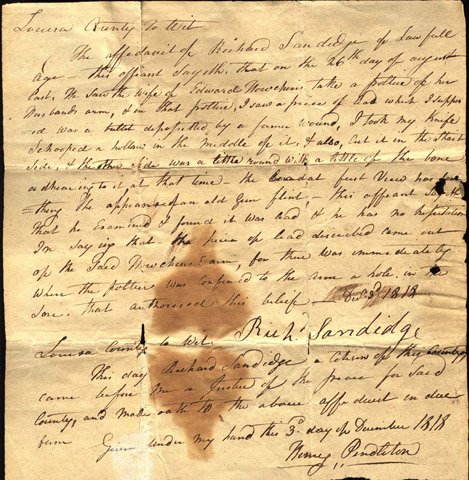 Louisa County to wit
The affidavit of Richard Sandidge of Lawfull
age – this affiant Sayeth, that on the 26th day of august
Last, He saw the wife of Edward Houchens take a poltice of her
Husbands arm, & in that poltice, I saw a piece of Lead which I suppos
=ed was a bullet deposited by a former wound, I took my knife
Schooped a hollow in the middle of it, & also, cut it in the Short
Side, & the other side was a little round with a little of the bone
adhearing to it at that time – the Lead at first View has
=thing the appearance of an old Gun flint, – this affiant saith
that he Examined & found it was lead & he has no hesitation
In saying that the piece of lead described came out
of the Said Houchens arm, for there was immediately
where the poltice was confined to the arm a hole, in
Sore, that authorised this belief – Decr 3d 1818
Richd Sandidge
Louisa County to wit
This day Richard Sandidge a citizen of this County
came before me a Justice of the peace for Said
County, and made oath to the above affidavit in due
form Given under my hand this 3d day of December 1818
Henry Pendleton